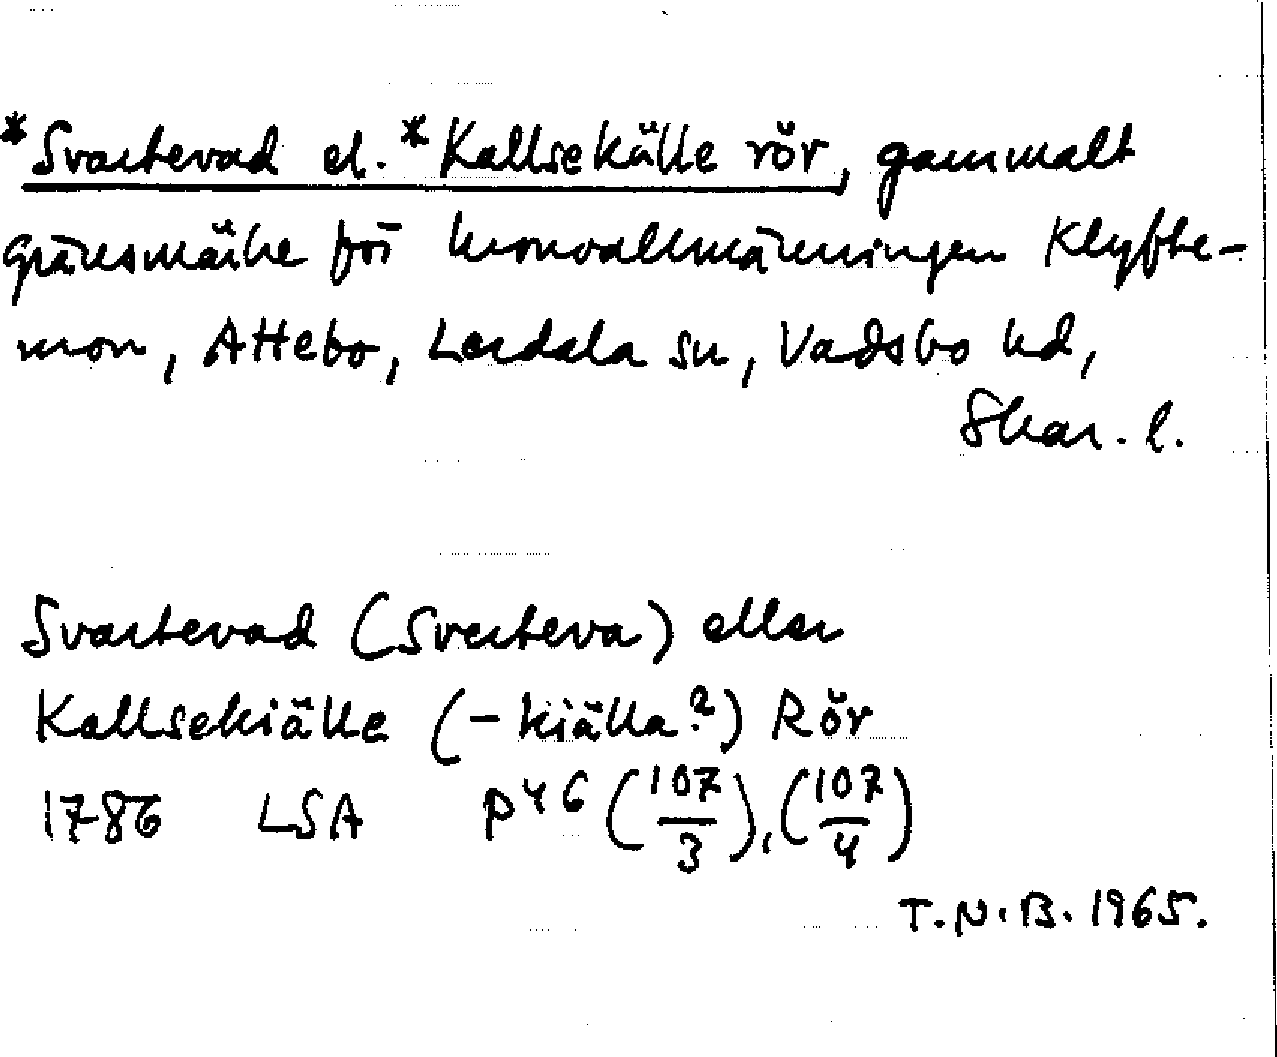 *Svartevad el. *Kallsekälle rör, gammalt
gränsmärke för kronoallmänningen Klyfte-
mon, Attebo, Lerdala sn, Vadsbo hd,
Skar. l.
Svartevad (Sverteva) eller
Kallsekiälle (-kiälla?) Rör
1786 LSA P46 (107/3), (107/4)
T.N.B. 1965.